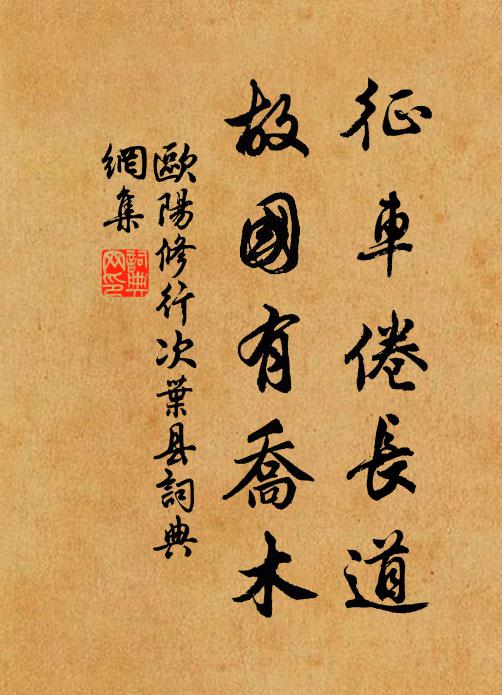 征車倦長道
故國有喬木
歐陽修行次葉县詞典
網集
詞典
网印